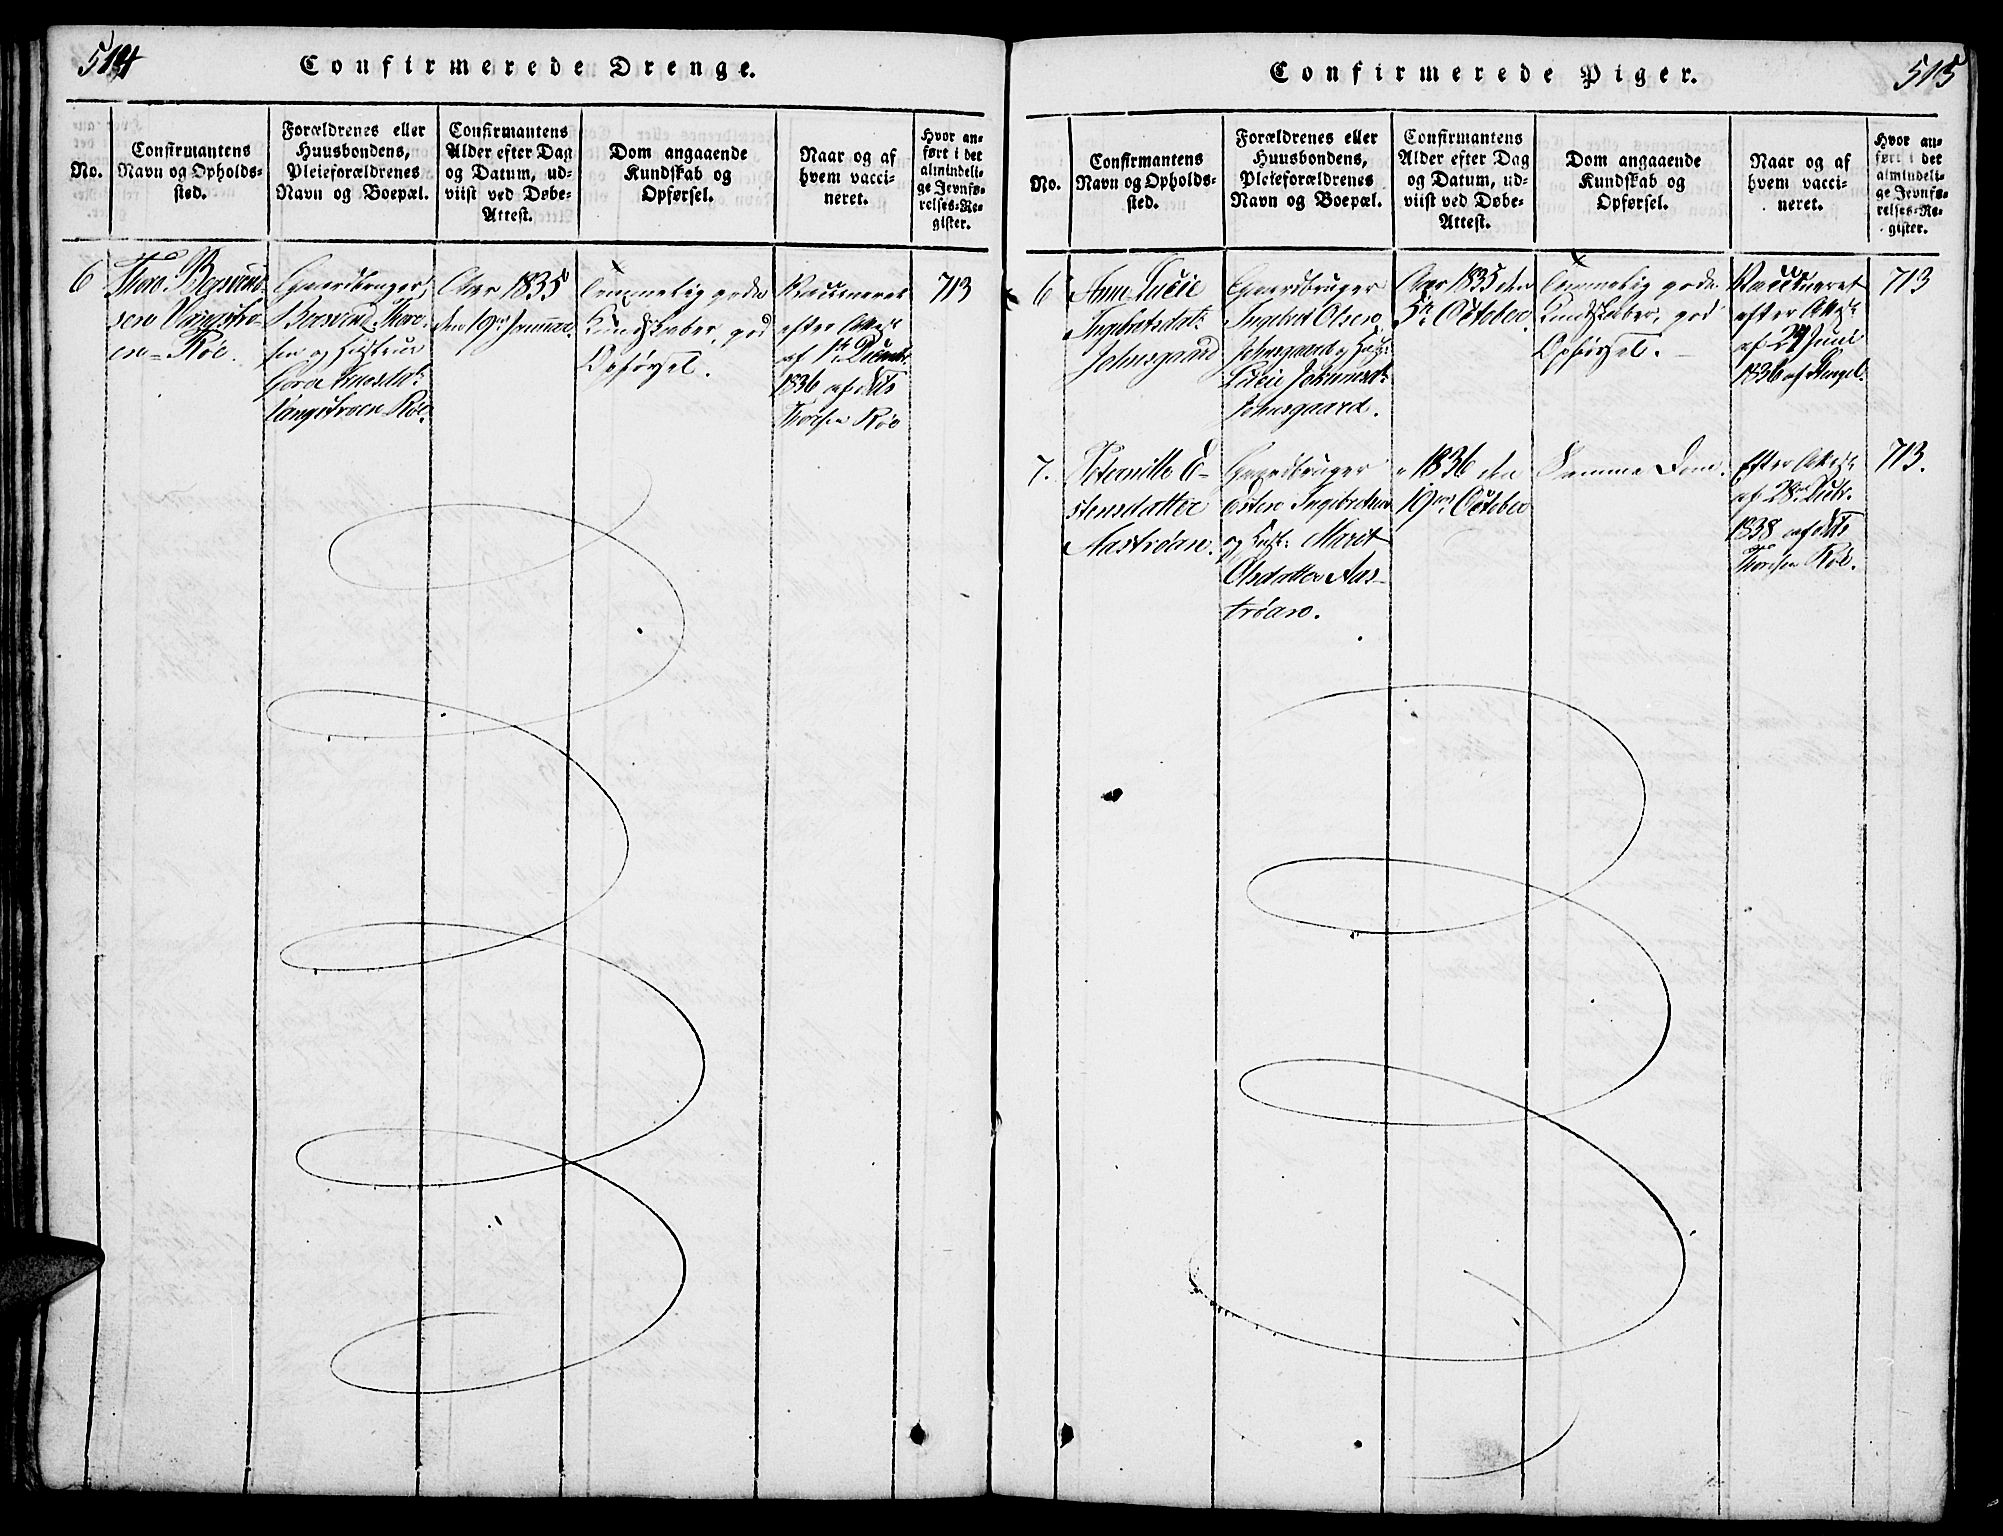 514
Confirmerede Drenge.
No.
Confirmantens
Navn og Opholds-
sted.
Forældrenes eller
Huusbondens,
Pleieforældrenes
Navn og Boepæl.
Confirmantens
Alder efter Dag
og Datum, ud-
viist ved Døbe-
Attest.
Dom angaaende
Kundskab og
Opførsel.
Naar og af
hvem vacci-
neret.
Hvor an-
ført i det
almindeli-
ge Jevnfø-
relses-Re-
gister.
6
Thore
Røe.
Gaardbruger
Thore-
sen og Hustrue
Røe.
Aar 1835
den 19de Januar.
Temmelig gode
Kundskaber, god
Opførsel.
Vaccineret
efter Attest
af 1st
1836 af
Thoresen Røe
713
515
Confirmerede Piger.
No.
Confirmantens
Navn og Opholds-
sted.
Forældrenes eller
Huusbondens,
Pleieforældrenes
Navn og Boepæl.
Confirmantens
Alder efter Dag
og Datum, ud-
viist ved Døbe-
Attest.
Dom angaaende
Kundskab og
Opførsel.
Naar og af
hvem vacci-
neret.
Hvor an-
ført i det
almindeli-
ge Jevnfø-
relses-Re-
gister.
6
Anne Lucie
Ingebretsdatr
Johnsgaard
Gaardbruger
Ingebret Olsen
Johnsgaard og Hust:
Lucie Johannesdtr
Johnsgaard.
Aar 1835 den
5te October.
Temmelig gode
Kundskaber, god
Opførsel.
Vaccineret
efter Attest
af 27 Juni
1836 af
713
7.
Pernille E-
stensdatter
Aastrøan.
Gaardbruger
Esten Ingebretsen
og Hust: Marit
Olsdatter Aas-
trøan.
" 1836 den
19de October
Samme Dom.
Efter Attest
af 28de
1838 af
Thoresen Røe.
713.